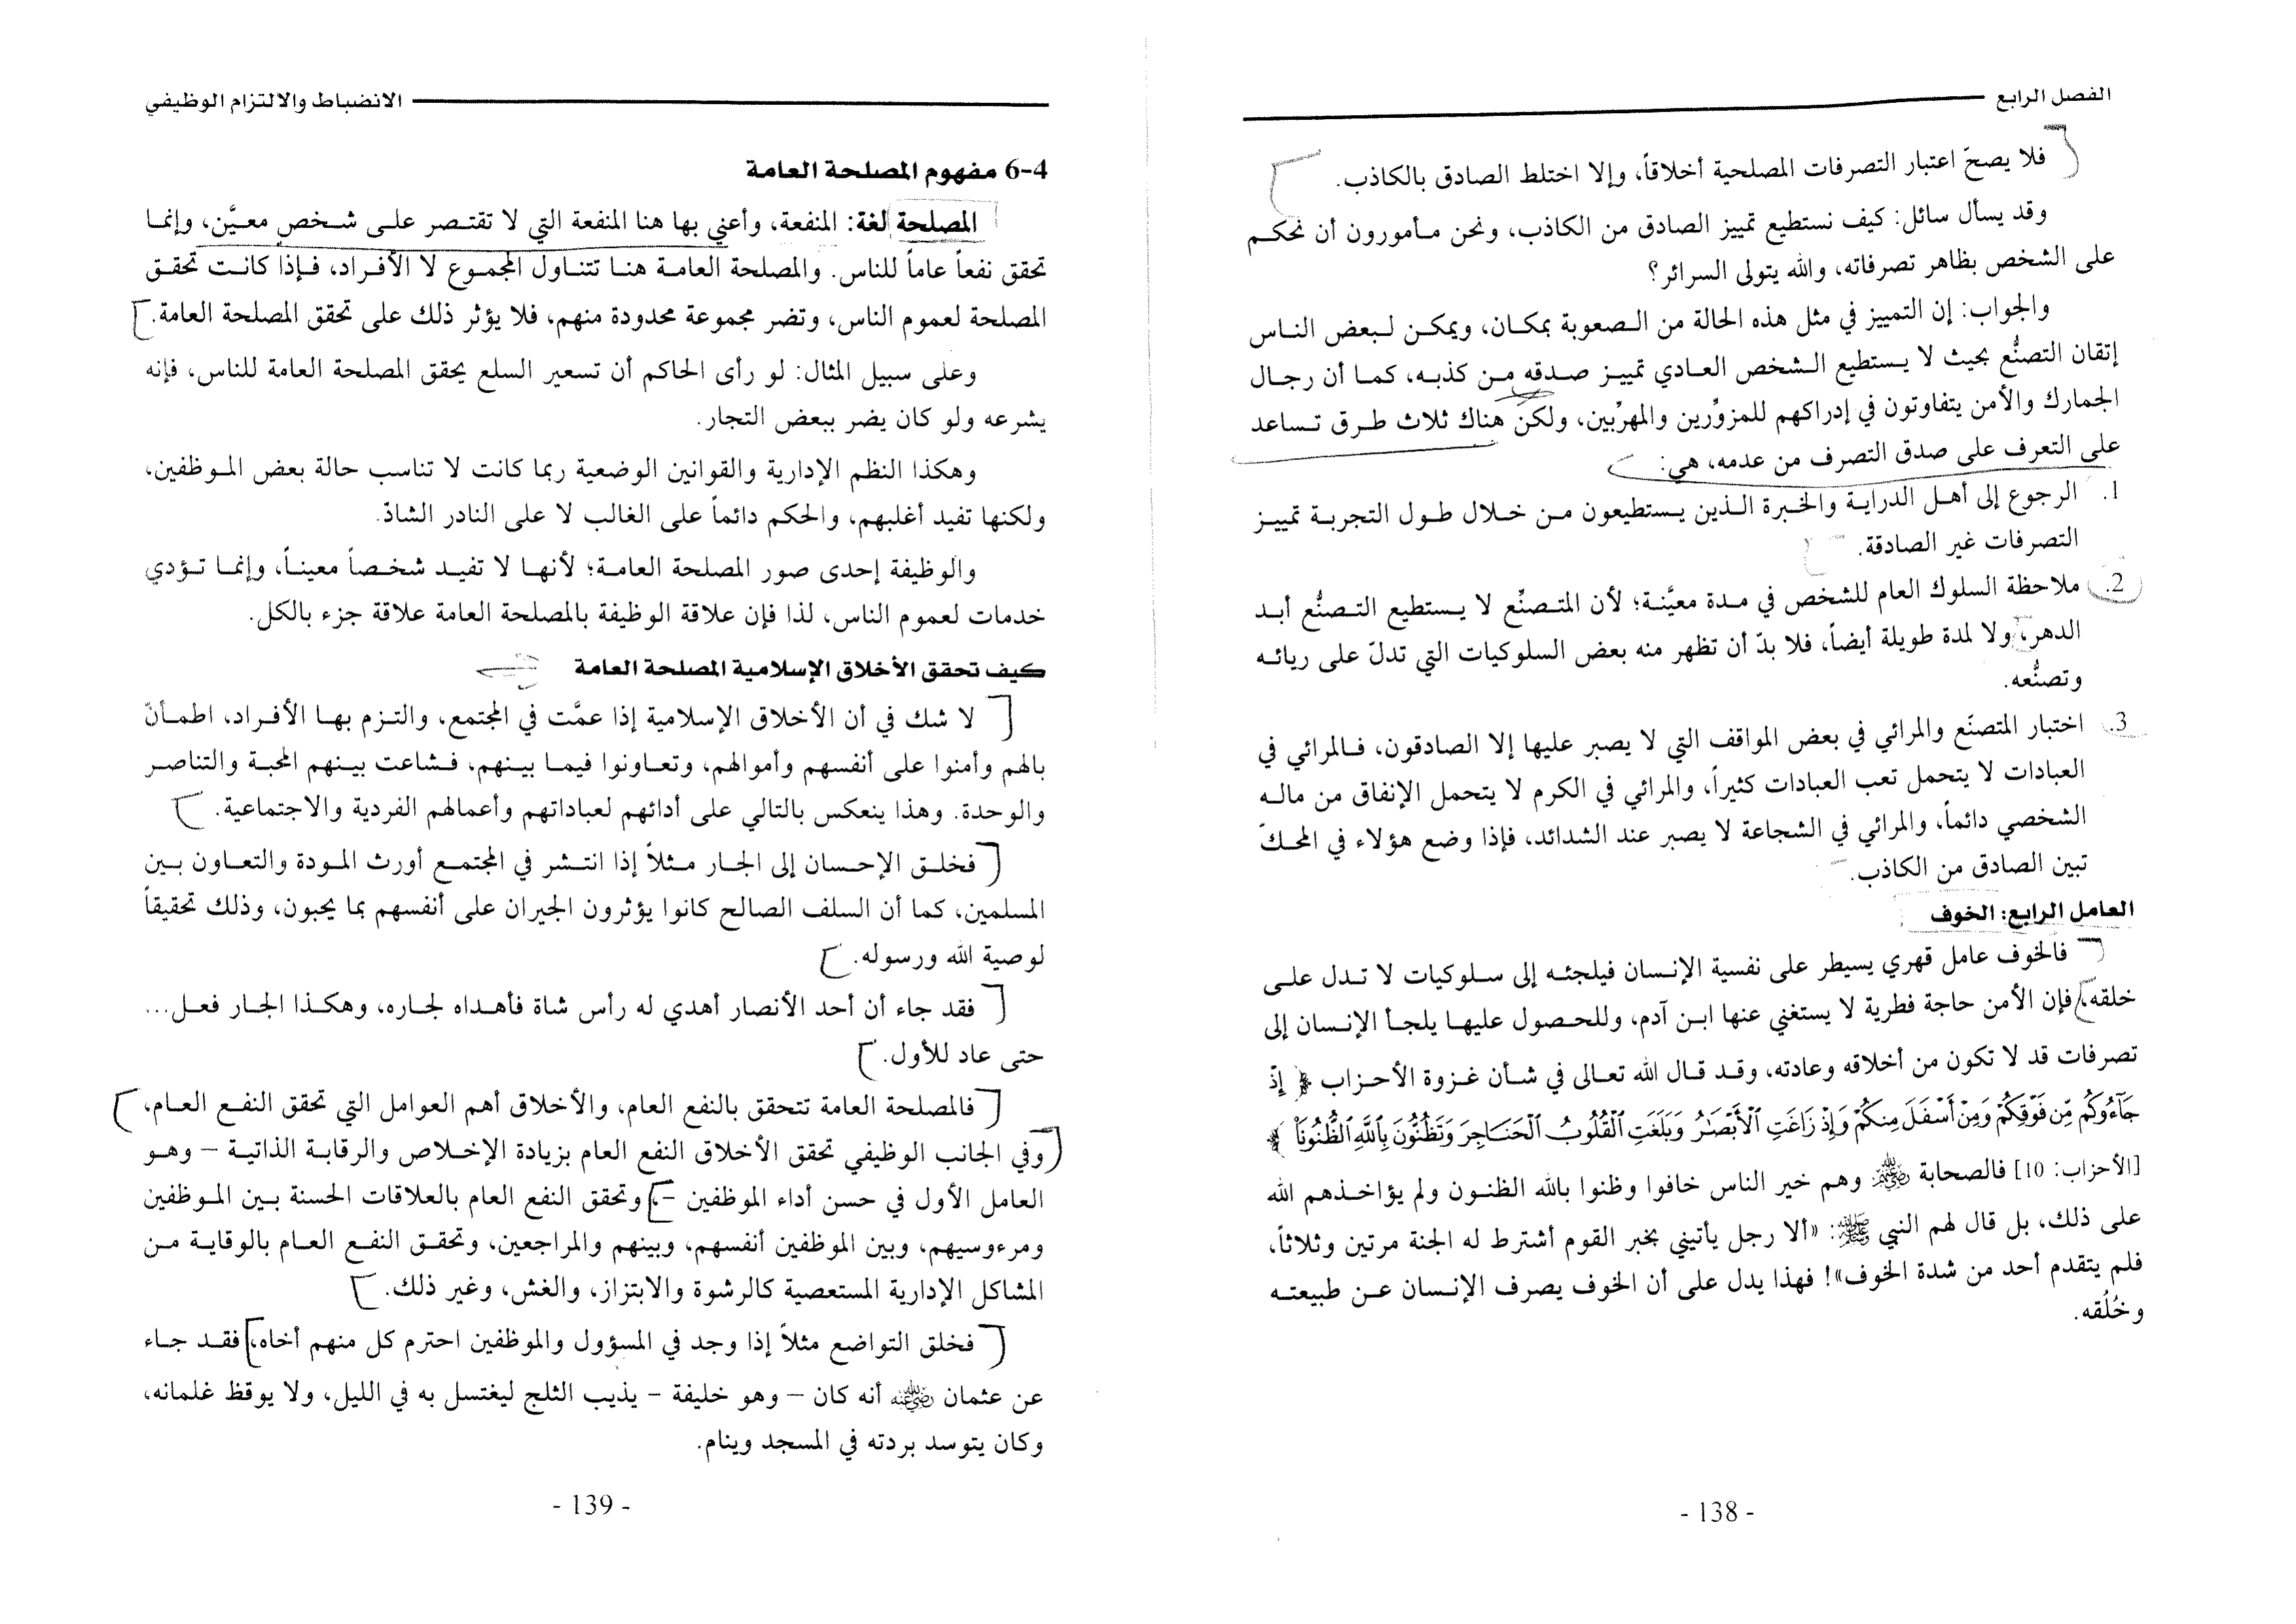 الفصل الرابع
فلا يصحّ اعتبار التصرفات المصلحية أخلاقاً، وإلا اختلط الصادق بالكاذب.
وقد يسأل سائل: كيف نستطيع تمييز الصادق من الكاذب، ونحن مأمورون أن نحكم
على الشخص بظاهر تصرفاته، والله يتولى السرائر؟
والجواب: إن التمييز في مثل هذه الحالة من الصعوبة بمكان، ويمكن لبعض الناس
إتقان التصنُّع بحيث لا يستطيع الشخص العادي تمييز صدقه من كذبه، كما أن رجال
الجمارك والأمن يتفاوتون في إدراكهم للمزوِّرين والمهرِّبين، ولكن هناك ثلاث طرق تساعد
على التعرف على صدق التصرف من عدمه، هي:
1. الرجوع إلى أهل الدراية والخبرة الذين يستطيعون من خلال طول التجربة تمييز
التصرفات غير الصادقة.
2. ملاحظة السلوك العام للشخص في مدة معيَّنة؛ لأن المتصنِّع لا يستطيع التصنُّع أبد
الدهر، ولا لمدة طويلة أيضاً، فلا بدّ أن تظهر منه بعض السلوكيات التي تدلّ على ريائه
وتصنُّعه.
3. اختبار المتصنّع والمرائي في بعض المواقف التي لا يصبر عليها إلا الصادقون، فالمرائي في
العبادات لا يتحمل تعب العبادات كثيراً، والمرائي في الكرم لا يتحمل الإنفاق من ماله
الشخصي دائماً، والمرائي في الشجاعة لا يصبر عند الشدائد، فإذا وضع هؤلاء في المحكّ
تبين الصادق من الكاذب.
العامل الرابع: الخوف
فالخوف عامل قهري يسيطر على نفسية الإنسان فيلجئه إلى سلوكيات لا تدل على
خلقه، فإن الأمن حاجة فطرية لا يستغني عنها ابن آدم، وللحصول عليها يلجأ الإنسان إلى
تصرفات قد لا تكون من أخلاقه وعادته، وقد قال الله تعالى في شأن غزوة الأحزاب ﴿ إِذْ
جَآءُوكُم مِّن فَوْقِكُمْ وَمِنْ أَسْفَلَ مِنكُمْ وَإِذْ زَاغَتِ ٱلْأَبْصَٰرُ وَبَلَغَتِ ٱلْقُلُوبُ ٱلْحَنَاجِرَ وَتَظُنُّونَ بِٱللَّهِ ٱلظُّنُونَا۠ ﴾
[الأحزاب: 10] فالصحابة رضي الله عنهم وهم خير الناس خافوا وظنوا بالله الظنون ولم يؤاخذهم الله
على ذلك، بل قال لهم النبي ﷺ: «ألا رجل يأتيني بخبر القوم أشترط له الجنة مرتين وثلاثاً،
فلم يتقدم أحد من شدة الخوف»! فهذا يدل على أن الخوف يصرف الإنسان عن طبيعته
وخُلُقه.
- 138 -
الانضباط والالتزام الوظيفي
6-4 مفهوم المصلحة العامة
المصلحة لغة: المنفعة، وأعني بها هنا المنفعة التي لا تقتصر على شخص معيَّن، وإنما
تحقق نفعاً عاماً للناس. والمصلحة العامة هنا تتناول المجموع لا الأفراد، فإذا كانت تحقق
المصلحة لعموم الناس، وتضر مجموعة محدودة منهم، فلا يؤثر ذلك على تحقق المصلحة العامة.
وعلى سبيل المثال: لو رأى الحاكم أن تسعير السلع يحقق المصلحة العامة للناس، فإنه
يشرعه ولو كان يضر ببعض التجار.
وهكذا النظم الإدارية والقوانين الوضعية ربما كانت لا تناسب حالة بعض الموظفين،
ولكنها تفيد أغلبهم، والحكم دائماً على الغالب لا على النادر الشاذّ.
والوظيفة إحدى صور المصلحة العامة؛ لأنها لا تفيد شخصاً معيناً، وإنما تؤدي
خدمات لعموم الناس، لذا فإن علاقة الوظيفة بالمصلحة العامة علاقة جزء بالكل.
كيف تحقق الأخلاق الإسلامية المصلحة العامة
لا شك في أن الأخلاق الإسلامية إذا عمَّت في المجتمع، والتزم بها الأفراد، اطمأنّ
بالهم وأمنوا على أنفسهم وأموالهم، وتعاونوا فيما بينهم، فشاعت بينهم المحبة والتناصر
والوحدة. وهذا ينعكس بالتالي على أدائهم لعباداتهم وأعمالهم الفردية والاجتماعية.
فخلق الإحسان إلى الجار مثلاً إذا انتشر في المجتمع أورث المودة والتعاون بين
المسلمين، كما أن السلف الصالح كانوا يؤثرون الجيران على أنفسهم بما يحبون، وذلك تحقيقاً
لوصية الله ورسوله.
فقد جاء أن أحد الأنصار أهدي له رأس شاة فأهداه لجاره، وهكذا الجار فعل...
حتى عاد للأول.
فالمصلحة العامة تتحقق بالنفع العام، والأخلاق أهم العوامل التي تحقق النفع العام،
وفي الجانب الوظيفي تحقق الأخلاق النفع العام بزيادة الإخلاص والرقابة الذاتية – وهو
العامل الأول في حسن أداء الموظفين -، وتحقق النفع العام بالعلاقات الحسنة بين الموظفين
ومرءوسيهم، وبين الموظفين أنفسهم، وبينهم والمراجعين، وتحقق النفع العام بالوقاية من
المشاكل الإدارية المستعصية كالرشوة والابتزاز، والغش، وغير ذلك.
فخلق التواضع مثلاً إذا وجد في المسؤول والموظفين احترم كل منهم أخاه، فقد جاء
عن عثمان رضي الله عنه أنه كان – وهو خليفة – يذيب الثلج ليغتسل به في الليل، ولا يوقظ غلمانه،
وكان يتوسد بردته في المسجد وينام.
- 139 -